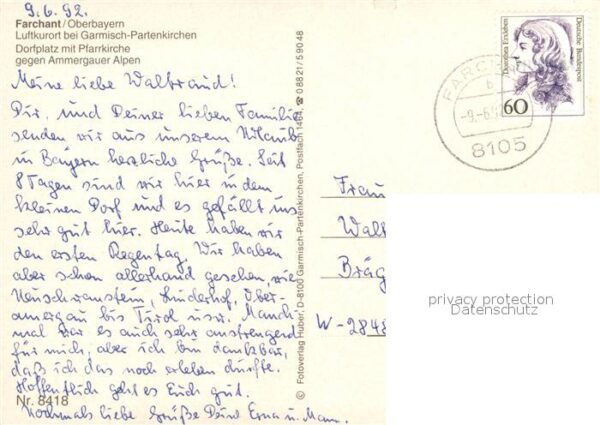 9.6.92.
Farchant/Oberbayern
Luftkurort bei Garmisch-Partenkirchen
Dorfplatz mit Pfarrkirche
gegen Ammergauer Alpen
Meine liebe Waltraud!
Dir und Deiner lieben Familie
senden wir aus unserem Urlaub
in Bayern herzliche Grüße. Seit
8 Tagen sind wir hier in dem
kleinen Dorf und es gefällt uns
sehr gut hier. Heute haben wir
den ersten Regentag. Wir haben
aber schon allerhand gesehen, wie
Neuschwanstein, Linderhof, Ober-
amergau bis Tirol usw. Manch-
mal war es auch sehr anstrengend
für mich, aber ich bin dankbar,
daß ich das noch erleben dürfte.
Hoffentlich geht es Euch gut.
Nr. 8418
Nochmals liebe Grüße Deine Erna u. Mann.
© Fotoverlag Huber, D-8100 Garmisch-Partenkirchen, Postfach 1464, ☎ 0 88 21/5 90 48
Dorothea Erxleben
Deutsche Bundespost
60
FARCH
b
-9.-6.
8105
Frau
Walt
Bräg
W-2848
privacy protection
Datenschutz